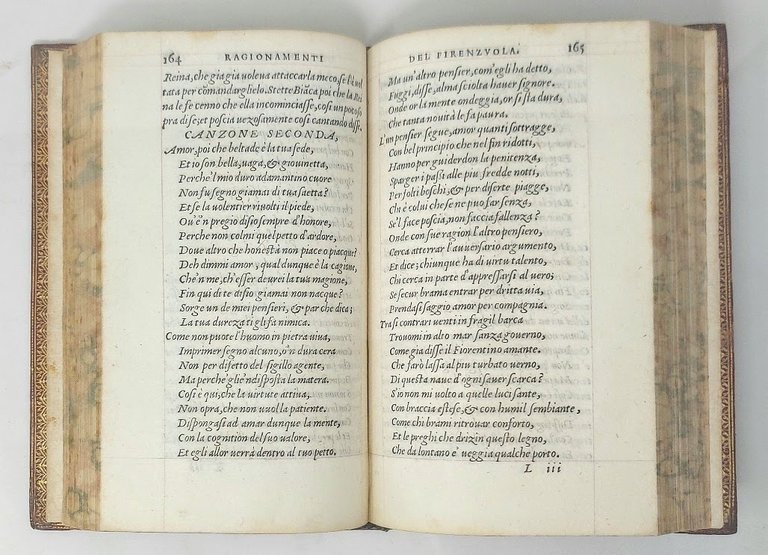 164 RAGIONAMENTI
Reina, che gia gia uoleua attaccarla meco, se l'è uol
tata per comandarglielo. Stette Biāca poi che la Rei
na le fe cenno che ella incominciasse, cosi un poco so
pra di se; et poscia uezosamente cosi cantando disse.
CANZONE SECONDA,
Amor, poi che beltade è la tua sede,
Et io son bella, uaga, & giouinetta,
Perche'l mio duro adamantino cuore
Non fu segno giamai di tua saetta?
Et se la uolentier riuolti il piede,
Ou'è'n pregio disio sempre d'honore,
Perche non colmi quel petto d'ardore,
Doue altro che honestà non piace o piacque?
Deh dimmi amor, qual dunque è la cagione,
Che'n me, ch'esser deurei la tua magione,
Fin qui di te disio giamai non nacque?
Sorge un de miei pensieri, & par che dica;
La tua durezza ti gli fa nimica.
Come non puote l'huomo in pietra uiua,
Imprimer segno alcuno, o'n dura cera
Non per difetto del sigillo agente,
Ma perche gliè 'ndisposta la matera.
Cosi è qui; che la uirtute attiua,
Non opra, che non uuol la patiente.
Dispongasi ad amar dunque la mente,
Con la cognition del suo ualore,
Et egli allor uerrà dentro al tuo petto.
DEL FIRENZVOLA. 165
Ma un'altro pensier, com'egli ha detto,
Fuggi, disse, alma sciolta hauer signore.
Onde or la mente ondeggia, or si sta dura,
Che tanta nouità le fa paura.
L'un pensier segue, amor quanti sottragge,
Con bel principio che nel fin ridotti,
Hanno per guiderdon la penitenza,
Sparger i passi alle piu fredde notti,
Per folti boschi, & per diserte piagge,
Chi è colui che se ne puo far senza,
Se'l face poscia, non faccia fallenza?
Onde con sue ragion l'altro pensiero,
Cerca atterrar l'auuersario argumento,
Et dice; chiunque ha di uirtu talento,
Chi cerca in parte d'appressarsi al uero;
Se secur brama entrar per dritta uia,
Prendasi saggio amor per compagnia.
Tra si contrari uenti in fragil barca
Trouomi in alto mar sanza gouerno,
Come gia disse il Fiorentino amante.
Che farò lassa al piu turbato uerno,
Di questa naue d'ogni sauer scarca?
S'io non mi uolto a quelle luci sante,
Con braccia estese, & con humil sembiante,
Come chi brami ritrouar conforto,
Et le preghi che drizin questo legno,
Che da lontano e' ueggia qualche porto.
L iii